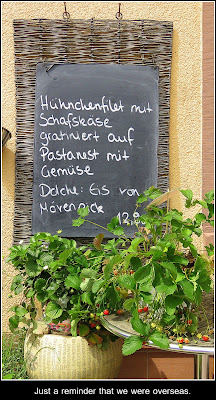 Hühnchenfilet mit
Schafskäse
gratiniert auf
Pastanest mit
Gemüse
Dolche: Eis von
Mövenpick 12.
Just a reminder that we were overseas.